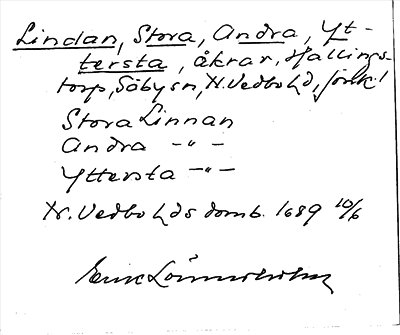 Lindan, Stora, Andra, Yt-
tersta, åkrar, Hallings-
torp, Säby sn, N. Vedbo hd, Jönk. l
Stora Linnan
Andra -"-
Yttersta -"-
N. Vedbo hds domb. 1689 10/6
Erik